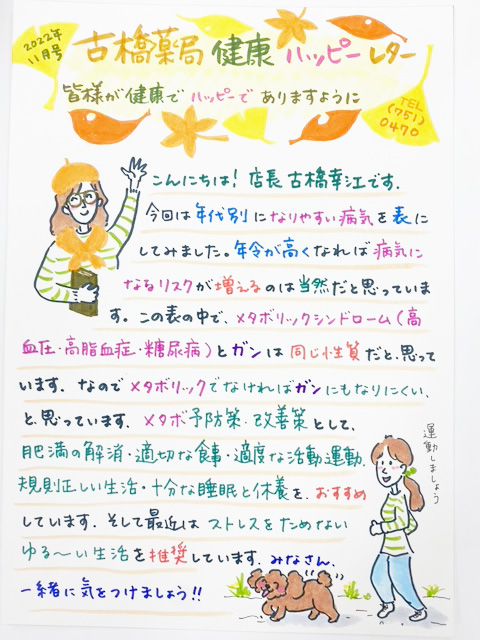 2022年
11月号
古橋薬局 健康 ハッピーレター
皆様が健康で ハッピーで ありますように
TEL
(751)
0470
こんにちは! 店長 古橋幸江です.
今回は年代別になりやすい病気を表に
してみました。年令が高くなれば病気に
なるリスクが増えるのは当然だと思っていま
す. この表の中で、メタボリックシンドローム(高
血圧・高脂血症・糖尿病)とガンは同じ性質だと、思って
います. なのでメタボリックでなければガンにもなりにくい、
と、思っています. メタボ予防策・改善策として、
肥満の解消・適切な食事・適度な活動運動、
規則正しい生活・十分な睡眠と休養を、おすすめ
しています. そして最近は ストレスをためない
ゆる〜い生活を推奨しています. みなさん、
一緒に気をつけましょう!!
運動しましょう